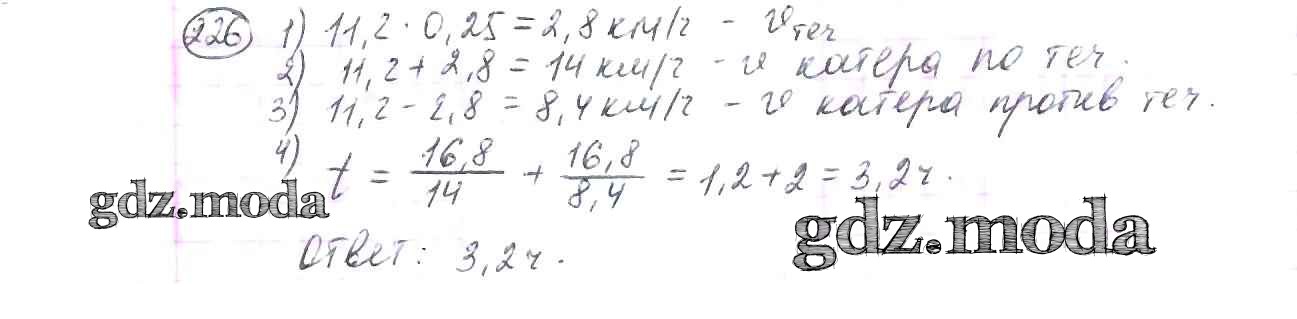 226 1) 11,2 · 0,25 = 2,8 км/ч - v теч
2) 11,2 + 2,8 = 14 км/ч - v катера по теч.
3) 11,2 - 2,8 = 8,4 км/ч - v катера против теч.
4) t = 16,8/14 + 16,8/8,4 = 1,2 + 2 = 3,2 ч.
gdz.moda
gdz.moda
Ответ: 3,2 ч.